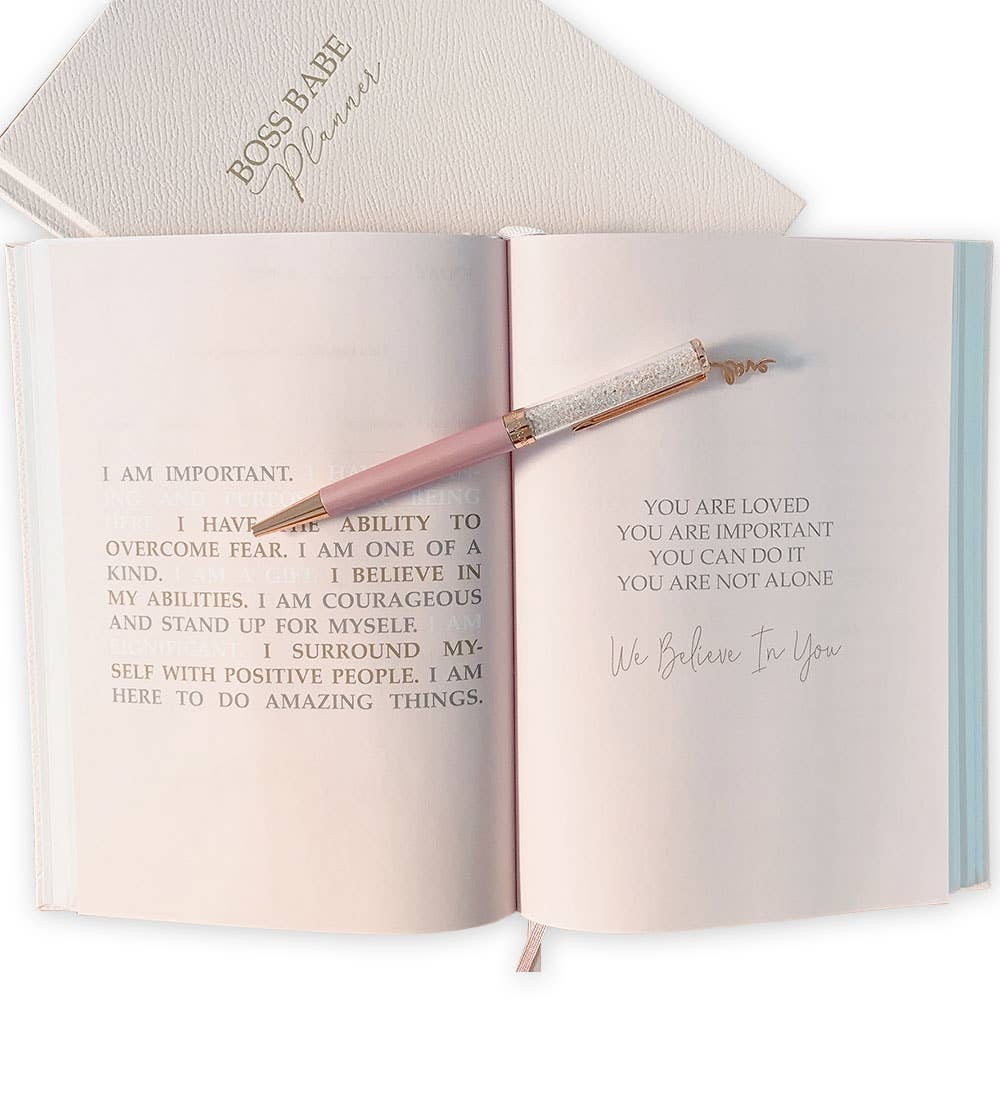 BOSS BABE
Planner
I AM IMPORTANT. I HAVE MEAN-
ING AND PURPOSE BEING
HERE. I HAVE THE ABILITY TO
OVERCOME FEAR. I AM ONE OF A
KIND. I AM A GIFT. I BELIEVE IN
MY ABILITIES. I AM COURAGEOUS
AND STAND UP FOR MYSELF. I AM
SIGNIFICANT. I SURROUND MY-
SELF WITH POSITIVE PEOPLE. I AM
HERE TO DO AMAZING THINGS.
love
YOU ARE LOVED
YOU ARE IMPORTANT
YOU CAN DO IT
YOU ARE NOT ALONE
We Believe In You